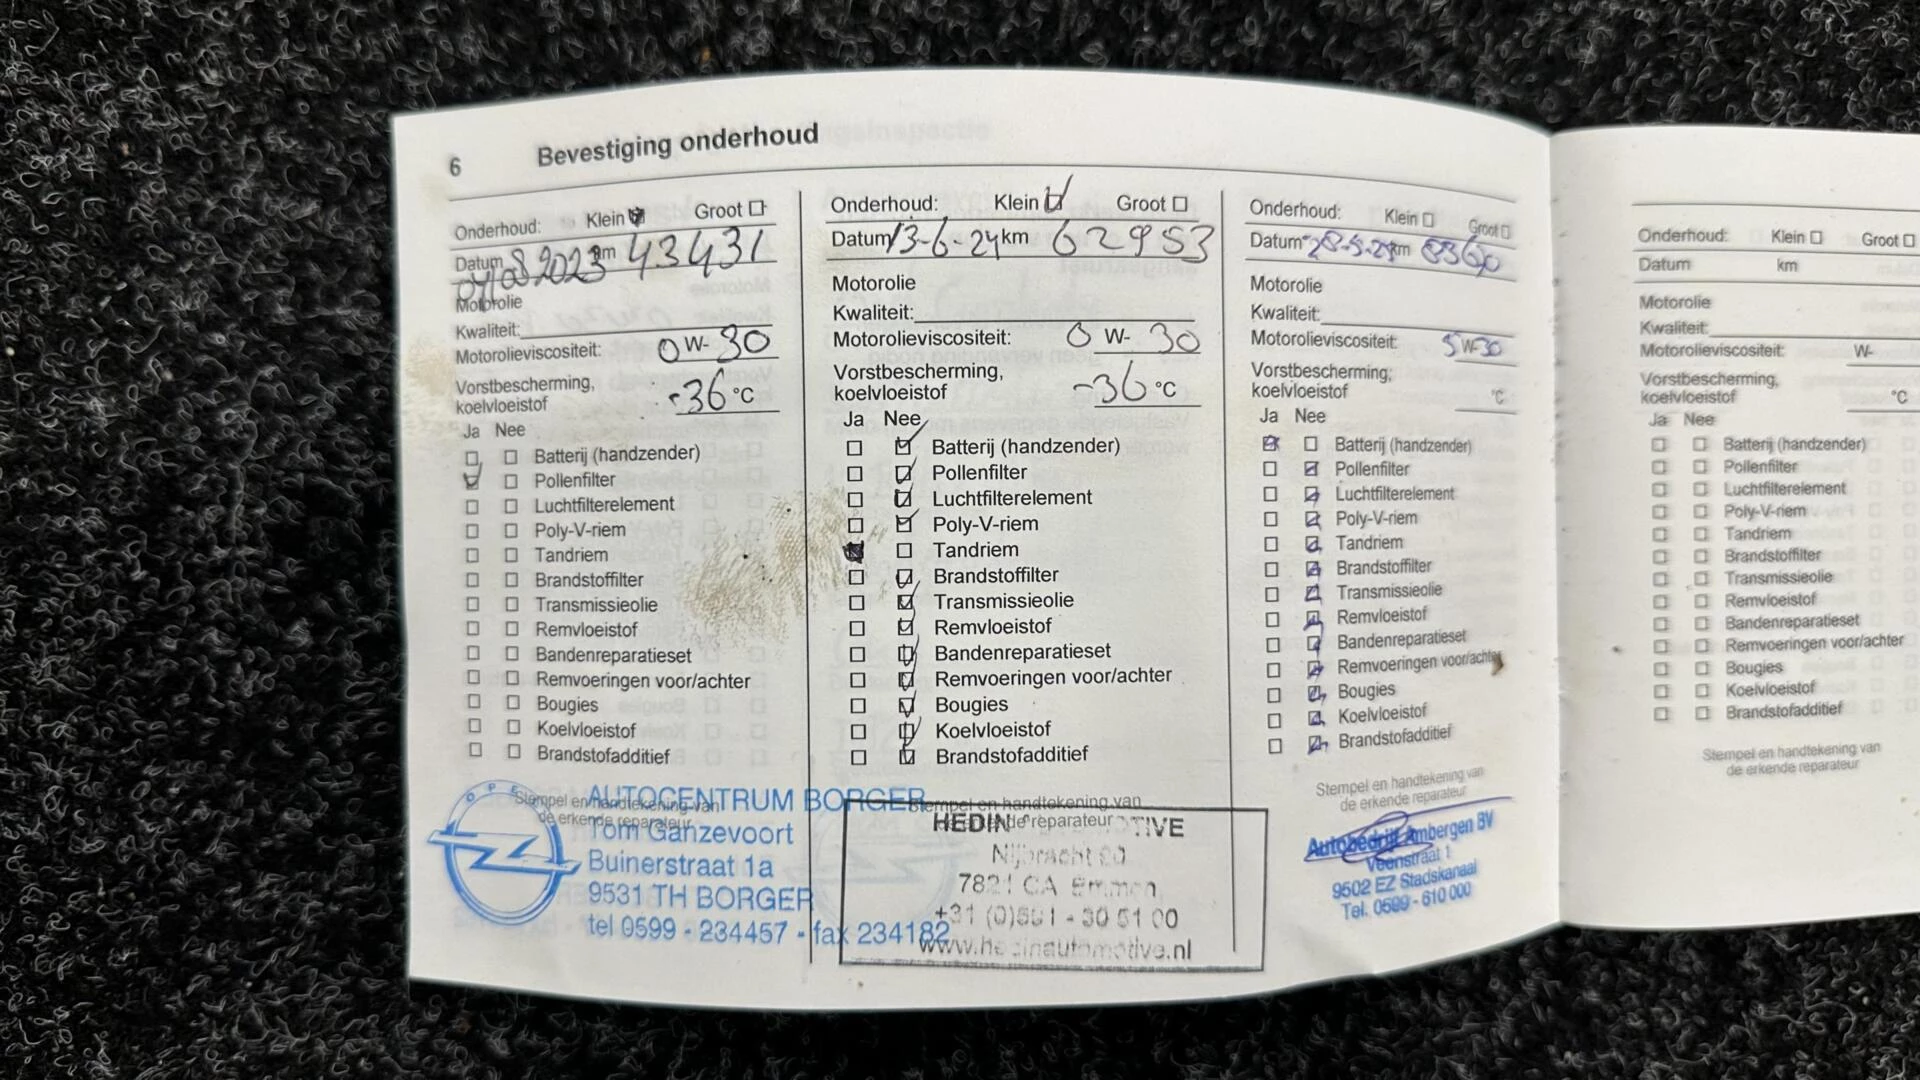 6 Bevestiging onderhoud
Onderhoud: Klein Groot
Datum 08.2023 km 43431
Motorolie
Kwaliteit:
Motorolieviscositeit: 0 W- 30
Vorstbescherming,
koelvloeistof -36 °C
Ja Nee
Batterij (handzender)
Pollenfilter
Luchtfilterelement
Poly-V-riem
Tandriem
Brandstoffilter
Transmissieolie
Remvloeistof
Bandenreparatieset
Remvoeringen voor/achter
Bougies
Koelvloeistof
Brandstofadditief
Stempel en handtekening van
de erkende reparateur
OPE
AUTOCENTRUM BORGER
Tom Ganzevoort
Buinerstraat 1a
9531 TH BORGER
tel 0599 - 234457 - fax 234182
Onderhoud: Klein Groot
Datum 13-6-24 km 62953
Motorolie
Kwaliteit:
Motorolieviscositeit: 0 W- 30
Vorstbescherming,
koelvloeistof -36 °C
Ja Nee
Batterij (handzender)
Pollenfilter
Luchtfilterelement
Poly-V-riem
Tandriem
Brandstoffilter
Transmissieolie
Remvloeistof
Bandenreparatieset
Remvoeringen voor/achter
Bougies
Koelvloeistof
Brandstofadditief
Stempel en handtekening van
de erkende reparateur
HEDIN
7821 CA Emmen
www.hedinautomotive.nl
Onderhoud: Klein Groot
Datum km
Motorolie
Kwaliteit:
Motorolieviscositeit: 5 W-30
Vorstbescherming,
koelvloeistof °C
Ja Nee
Batterij (handzender)
Pollenfilter
Luchtfilterelement
Poly-V-riem
Tandriem
Brandstoffilter
Transmissieolie
Remvloeistof
Bandenreparatieset
Remvoeringen voor/achter
Bougies
Koelvloeistof
Brandstofadditief
Stempel en handtekening van
de erkende reparateur
Autobedrijf Ambergen BV
Veenstraat 1
9502 EZ Stadskanaal
Tel. 0599 - 610 000
Onderhoud: Klein Groot
Datum km
Motorolie
Kwaliteit:
Motorolieviscositeit: W-
Vorstbescherming,
koelvloeistof °C
Ja Nee
Batterij (handzender)
Pollenfilter
Luchtfilterelement
Poly-V-riem
Tandriem
Brandstoffilter
Transmissieolie
Remvloeistof
Bandenreparatieset
Remvoeringen voor/achter
Bougies
Koelvloeistof
Brandstofadditief
Stempel en handtekening van
de erkende reparateur